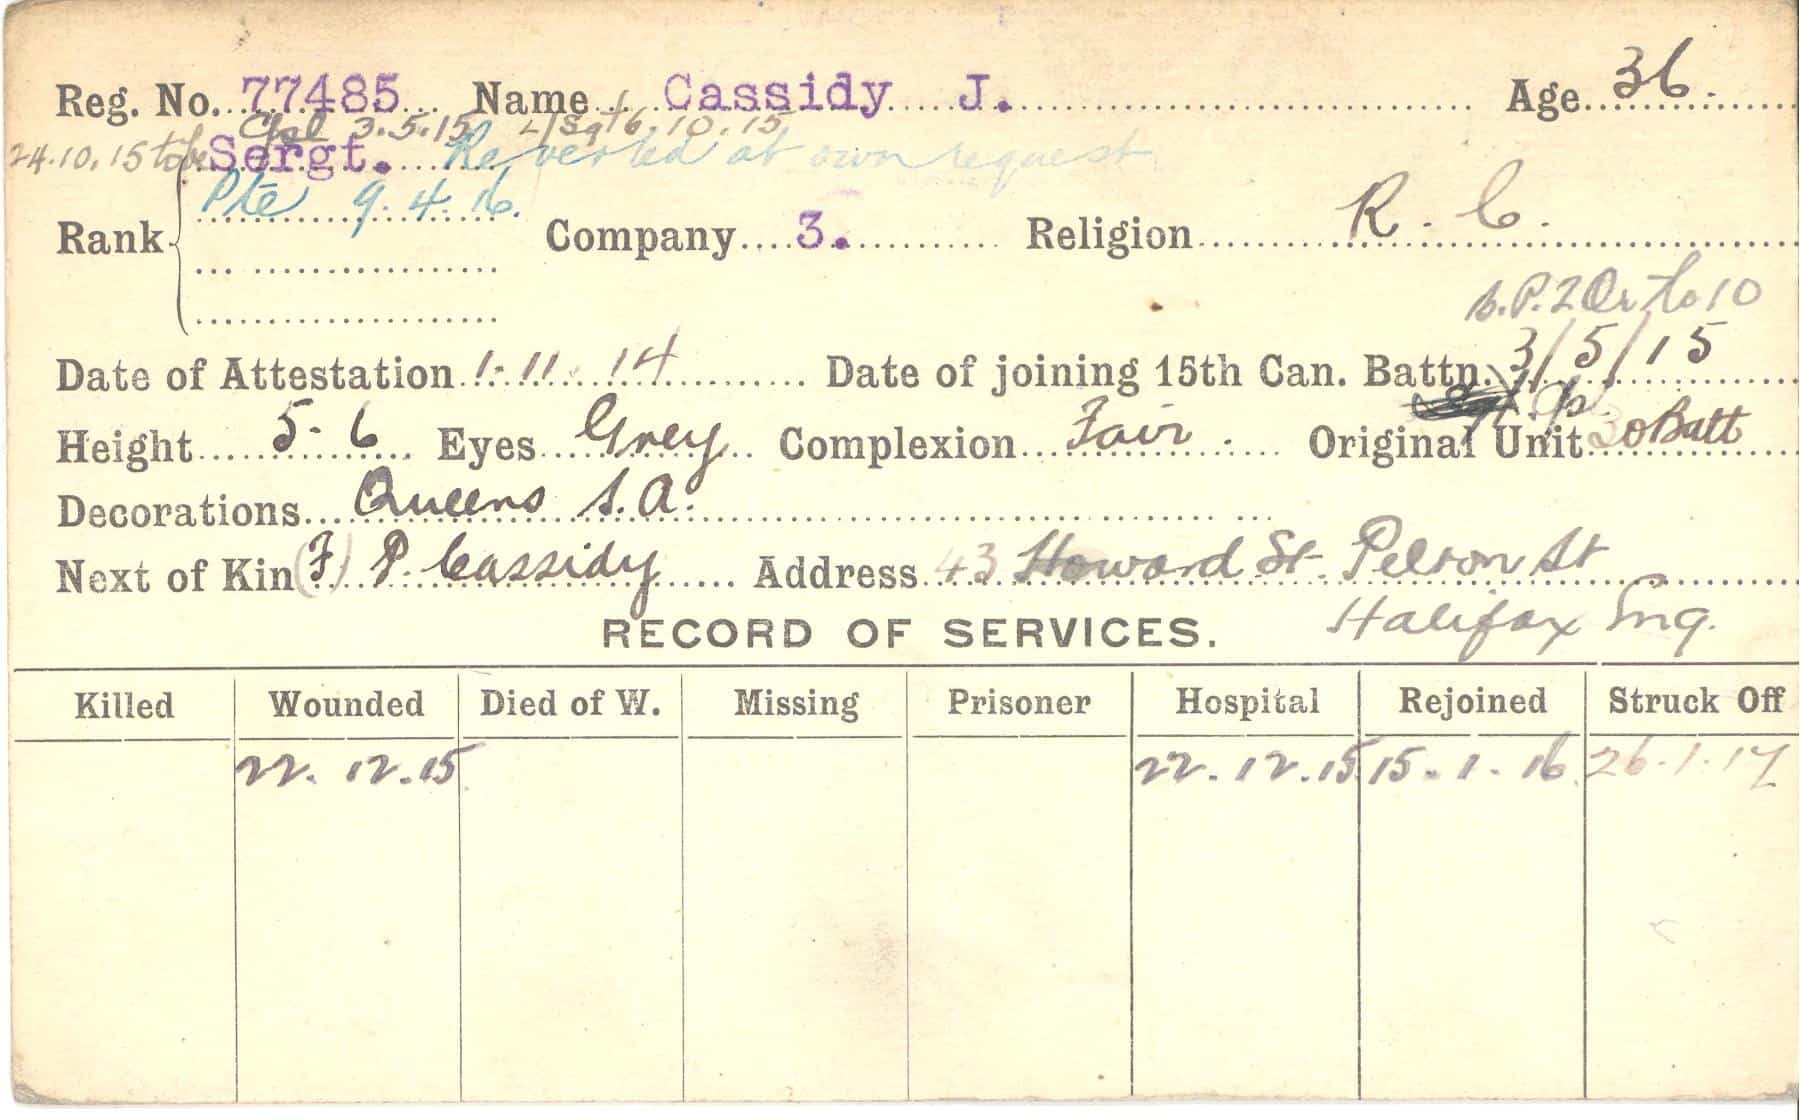 Reg. No. 77485 Name Cassidy J. Age 36.
Cpl 3.5.15 L/Sgt 6.10.15
24.10.15 to be Sergt. Reverted at own request
Pte 9.4.16.
Rank Company 3. Religion R. C.
B.P.2 Or to 10
Date of Attestation 1.11.14 Date of joining 15th Can. Battn. 3/5/15
Height 5-6 Eyes Grey Complexion Fair. Original Unit 30 Batt
Decorations Queens S.A.
Next of Kin (F) P. Cassidy Address 43 Howard St. Pelson St
Halifax Eng.
RECORD OF SERVICES.
Killed Wounded Died of W. Missing Prisoner Hospital Rejoined Struck Off
22.12.15 22.12.15 15.1.16 26.1.17